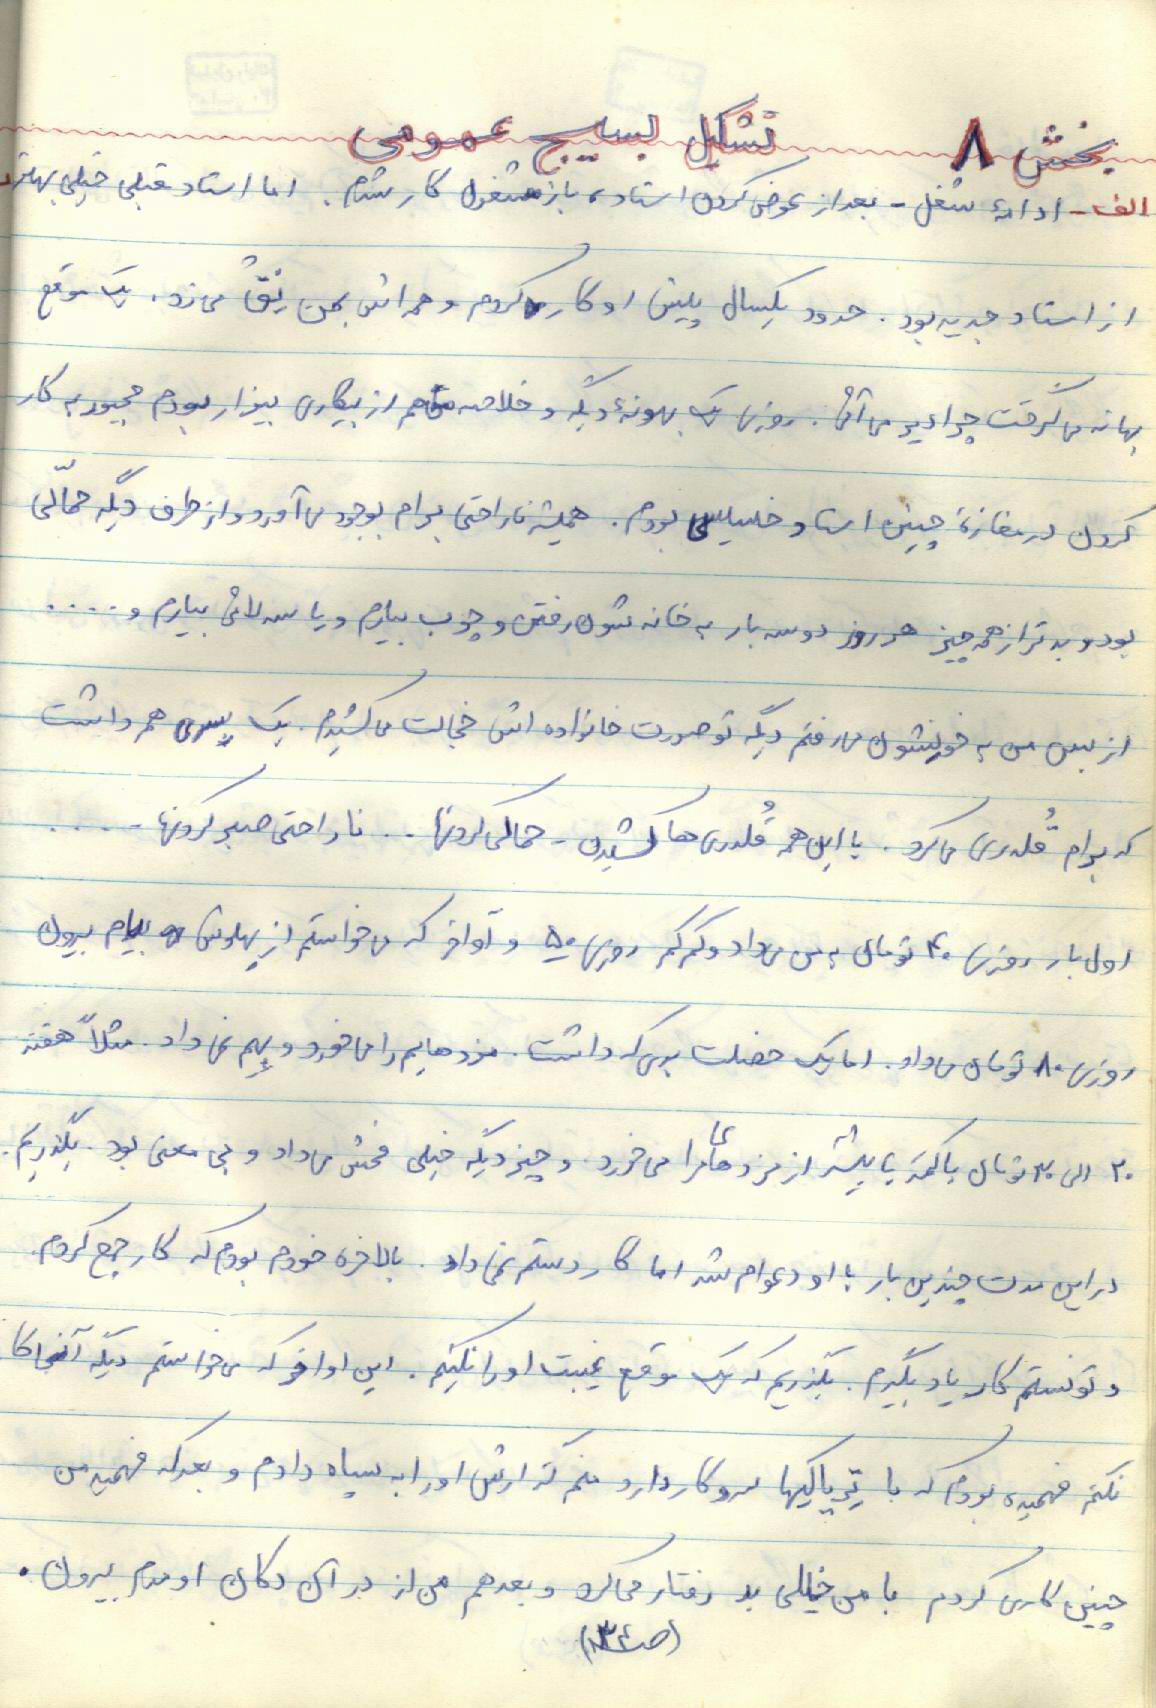 بخش ۸ تشکیل بسیج عمومی
الف - ادامهٔ شغل - بعد از عوض کردن استاد، باز مشغول کار شدم. اما استاد قبلی خیلی بهتر
از استاد جدید بود. حدود یکسال پیش او کار کردم و همه اش بمن نِقْ می زد. یک موقع
بهانه می گرفت چرا دیر می آئی. روزی یک بهونهٔ دیگه و خلاصه منهم از بیکاری بیزار بودم مجبور به کار
کردن در مغازهٔ چنین استاد خسیسی بودم. همیشه ناراحتی برام بوجود می آورد و از طرف دیگه حمّالی
بود و بدتر از همه چیز هر روز دو سه بار به خانه شون رفتن و چوب بیارم و یا سه لائی بیارم و ....
از بس من به خونشون می رفتم دیگه تو صورت خانواده اش خجالت می کشیدم. یک پسری هم داشت
که برام قُلدری می کرد. با این همه قُلدری ها کشیدن - حمالی کردنها .. ناراحتی صبر کردنها - ....
اول بار روزی ۴۰ تومان به من می داد و کم کم روزی ۵۰ و آواخر که می خواستم از پهلوش بیام بیرون
روزی ۸۰ تومان می داد. اما یک خصلت بدی که داشت. مزدهایم را می خورد و بهم نمی داد. مثلاً هفته
۲۰ الی ۳۰ تومان یا کمتر یا بیشتر از مزدهای مرا می خورد. و چیز دیگه خیلی فحش می داد و بی معنی بود. بگذریم.
در این مدت چندین بار با او دعوام شد اما کار دستم نمی داد. بالاخره خودم بودم که کار جمع کردم.
و تونستم کار یاد بگیرم. بگذریم که یک موقع غیبت او را نکنیم. این اواخر که می خواستم دیگه آنجا کا
نکنم فهمیده بودم که با تریاکیها سروکار دارد منم گزارش او را به سپاه دادم و بعد که فهمید من
چنین کاری کردم با من خیلی بد رفتار می کرد و بعد هم من از در آن دکان اومدم بیرون.